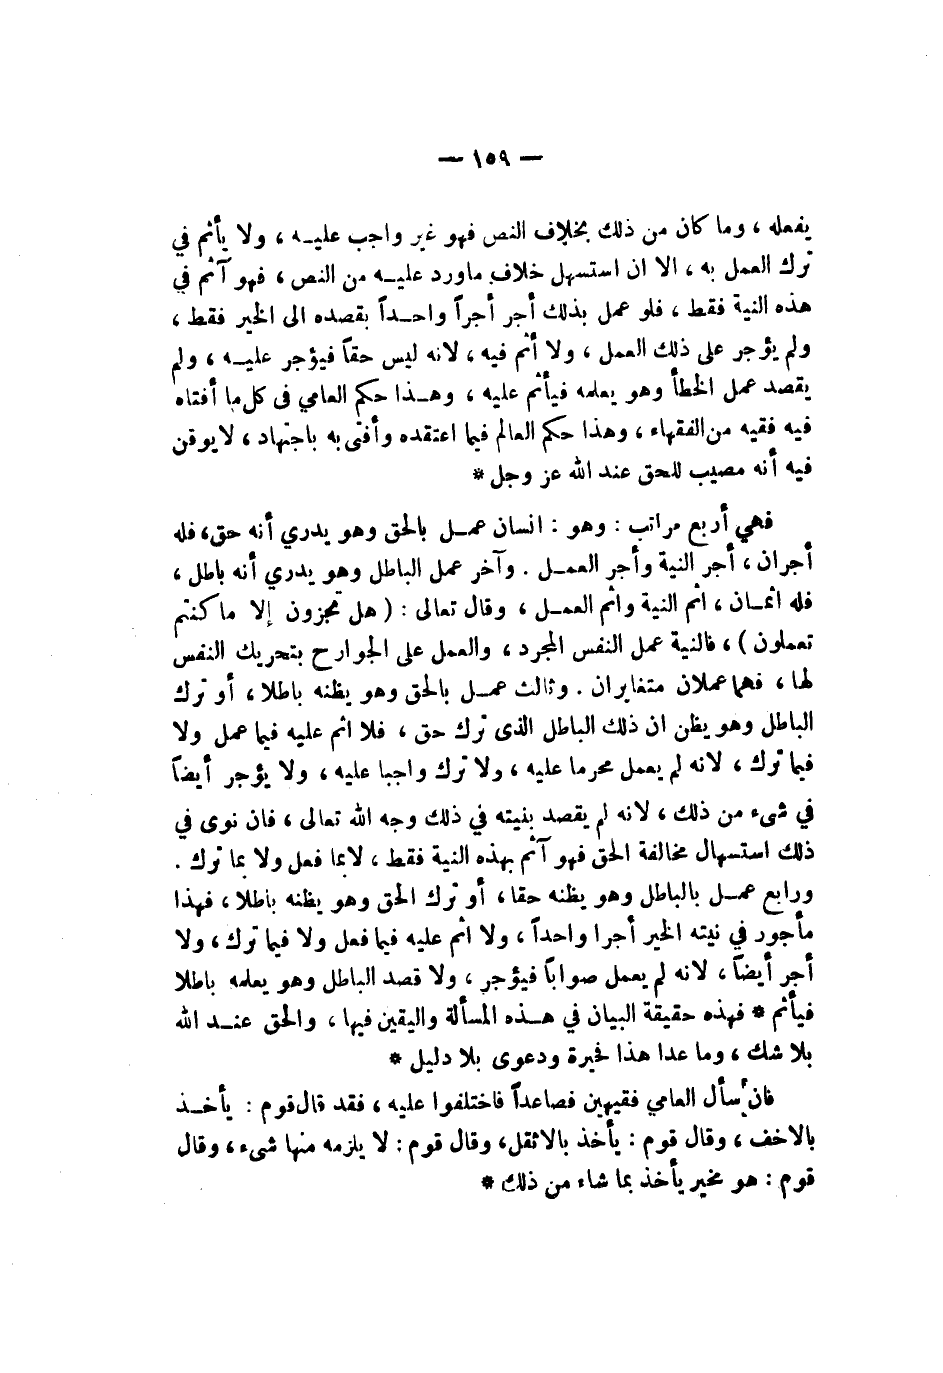 — ١٥٩ —
يفعله ، وما كان من ذلك بخلاف النص فهو غير واجب عليه ، ولا يأثم في
ترك العمل به ، الا ان استسهل خلاف ماورد عليه من النص ، فهو آثم في
هذه النية فقط ، فلو عمل بذلك أجر أجراً واحداً بقصده الى الخير فقط ،
ولم يؤجر على ذلك العمل ، ولا أثم فيه ، لانه ليس حقاً فيؤجر عليه ، ولم
يقصد عمل الخطأ وهو يعلمه فيأثم عليه ، وهذا حكم العامي فى كل ما أفتاه
فيه فقيه من الفقهاء ، وهذا حكم العالم فيما اعتقده وأفتى به باجتهاد ، لا يوقن
فيه أنه مصيب للحق عند الله عز وجل *
فهي أربع مراتب : وهو : انسان عمل بالحق وهو يدري أنه حق ، فله
أجران ، أجر النية وأجر العمل . وآخر عمل الباطل وهو يدري أنه باطل ،
فله اثمان ، اثم النية واثم العمل ، وقال تعالى : ( هل تجزون إلا ما كنتم
تعملون ) ، فالنية عمل النفس المجرد ، والعمل على الجوارح بتحريك النفس
لها ، فهما عملان متغايران . وثالث عمل بالحق وهو يظنه باطلا ، أو ترك
الباطل وهو يظن ان ذلك الباطل الذى ترك حق ، فلا اثم عليه فيما عمل ولا
فيما ترك ، لانه لم يعمل محرما عليه ، ولا ترك واجبا عليه ، ولا يؤجر أيضاً
في شىء من ذلك ، لانه لم يقصد بنيته في ذلك وجه الله تعالى ، فان نوى في
ذلك استسهال مخالفة الحق فهو آثم بهذه النية فقط ، لا بما فعل ولا بما ترك .
ورابع عمل بالباطل وهو يظنه حقا ، أو ترك الحق وهو يظنه باطلا ، فهذا
مأجور في نيته الخير أجرا واحداً ، ولا اثم عليه فيما فعل ولا فيما ترك ، ولا
أجر أيضاً ، لانه لم يعمل صواباً فيؤجر ، ولا قصد الباطل وهو يعلمه باطلا
فيأثم * فهذه حقيقة البيان في هذه المسألة واليقين فيها ، والحق عند الله
بلا شك ، وما عدا هذا فحيرة ودعوى بلا دليل *
فان سأل العامي فقيهين فصاعداً فاختلفوا عليه ، فقد قال قوم : يأخذ
بالاخف ، وقال قوم : يأخذ بالاثقل ، وقال قوم : لا يلزمه منها شىء ، وقال
قوم : هو مخير يأخذ بما شاء من ذلك *